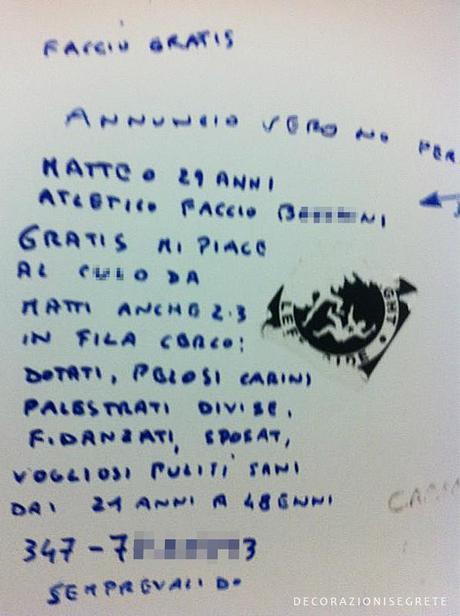 FACCIO GRATIS
ANNUNCIO VERO NO PER
MATTEO 29 ANNI
ATLETICO FACCIO B NI
GRATIS MI PIACE
AL CULO DA
MATTI ANCHE 2.3
IN FILA CERCO:
DOTATI, PELOSI CARINI
PALESTRATI DIVISE,
FIDANZATI, SPOSAT,
VOGLIOSI PULITI SANI
DAI 21 ANNI A 48 ENNI
347-7 3
SEMPREVALIDO
LEFT SIDE
DECORAZIONISEGRETE